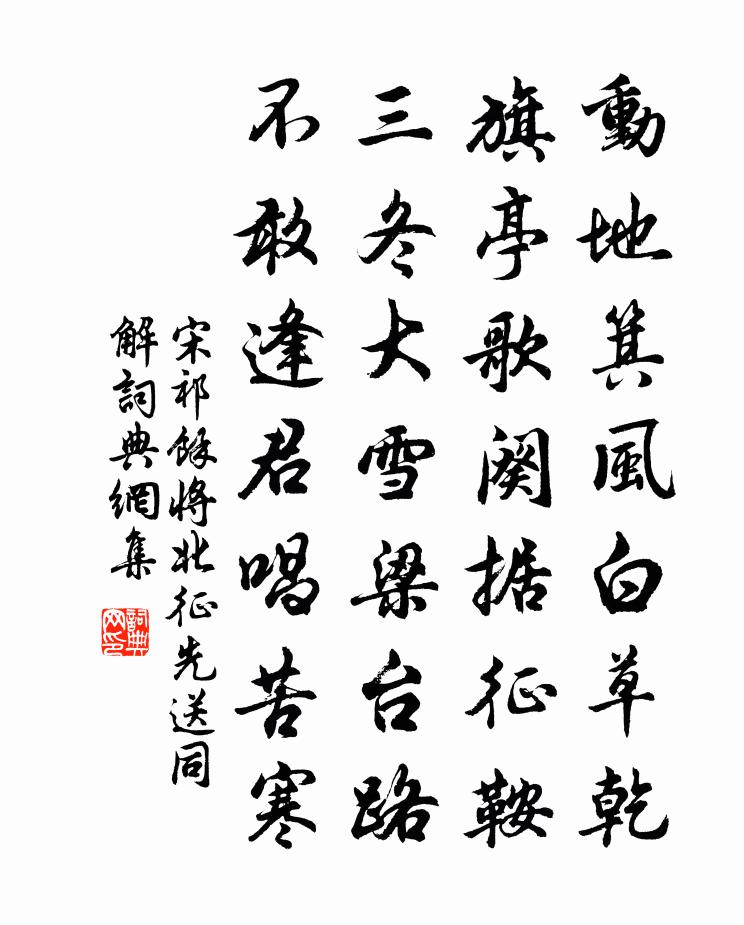 動地箕風白草乾
旗亭歌闋据征鞍
三冬大雪梁台路
不敢逢君唱苦寒
宋祁餘將北征先送同
解詞典網集
詞典網印